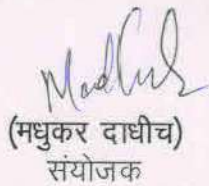 (मधुकर दाधीच)
संयोजक